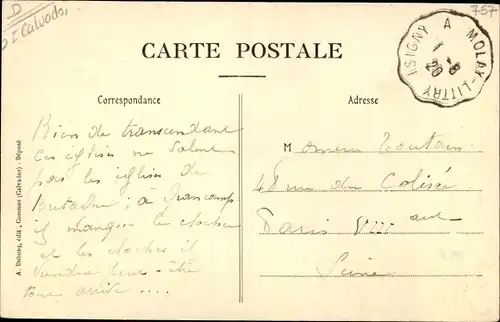 D
Calvados,
757
ISIGNY A MOLAY-LITTRY
1 -8
20
CARTE POSTALE
Correspondance
Adresse
Rien de transcendant
Ces églises ne valent
pas les églises de
Bretagne; à
il manque le clocher
et les cloches il
viendra peut-être
tout arrive....
Monsieur Toutain
48 rue du Colisée
Paris VIII
Seine
A. Dubosq, édit., Commes (Calvados) - Déposé